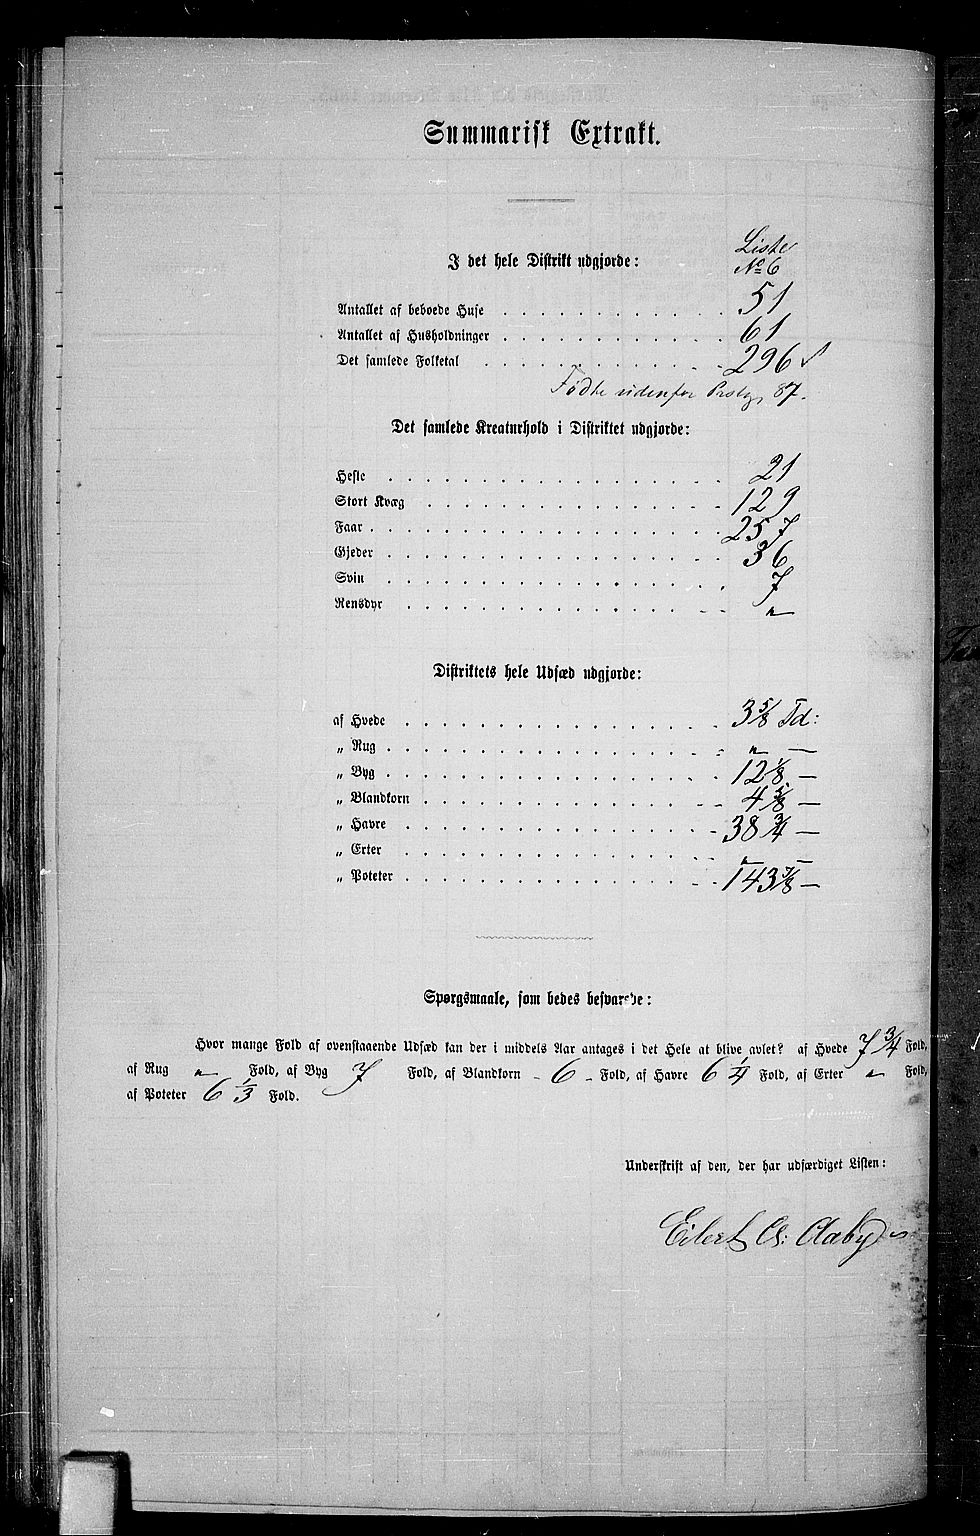 Summarisk Extrakt.
Liste
No 6
I det hele Distrikt udgjorde:
Antallet af beboede Huse 51
Antallet af Husholdninger 61
Det samlede Folketal 296
Fødte udenfor Prstgj. 87.
Det samlede Kreaturhold i Distriktet udgjorde:
Heste 21
Stort Kvæg 129
Faar 257
Gjeder 36
Svin 7
Rensdyr "
Distriktets hele Udsæd udgjorde:
af Hvede 3 5/8 Td:
„ Rug " —
„ Byg 12 1/8 —
„ Blandkorn 4 5/8 —
„ Havre 38 3/4 —
„ Erter " —
„ Poteter 143 7/8 —
Spørgsmaale, som bedes besvarede:
Hvor mange Fold af ovenstaaende Udsæd kan der i middels Aar antages i det Hele at blive avlet? af Hvede 7 3/4 Fold,
af Rug " Fold, af Byg 7 Fold, af Blandkorn - 6 - Fold, af Havre 6 1/4 Fold, af Erter " Fold,
af Poteter 6 1/3 Fold.
Underskrift af den, der har udfærdiget Listen:
Eilert A: Aaby